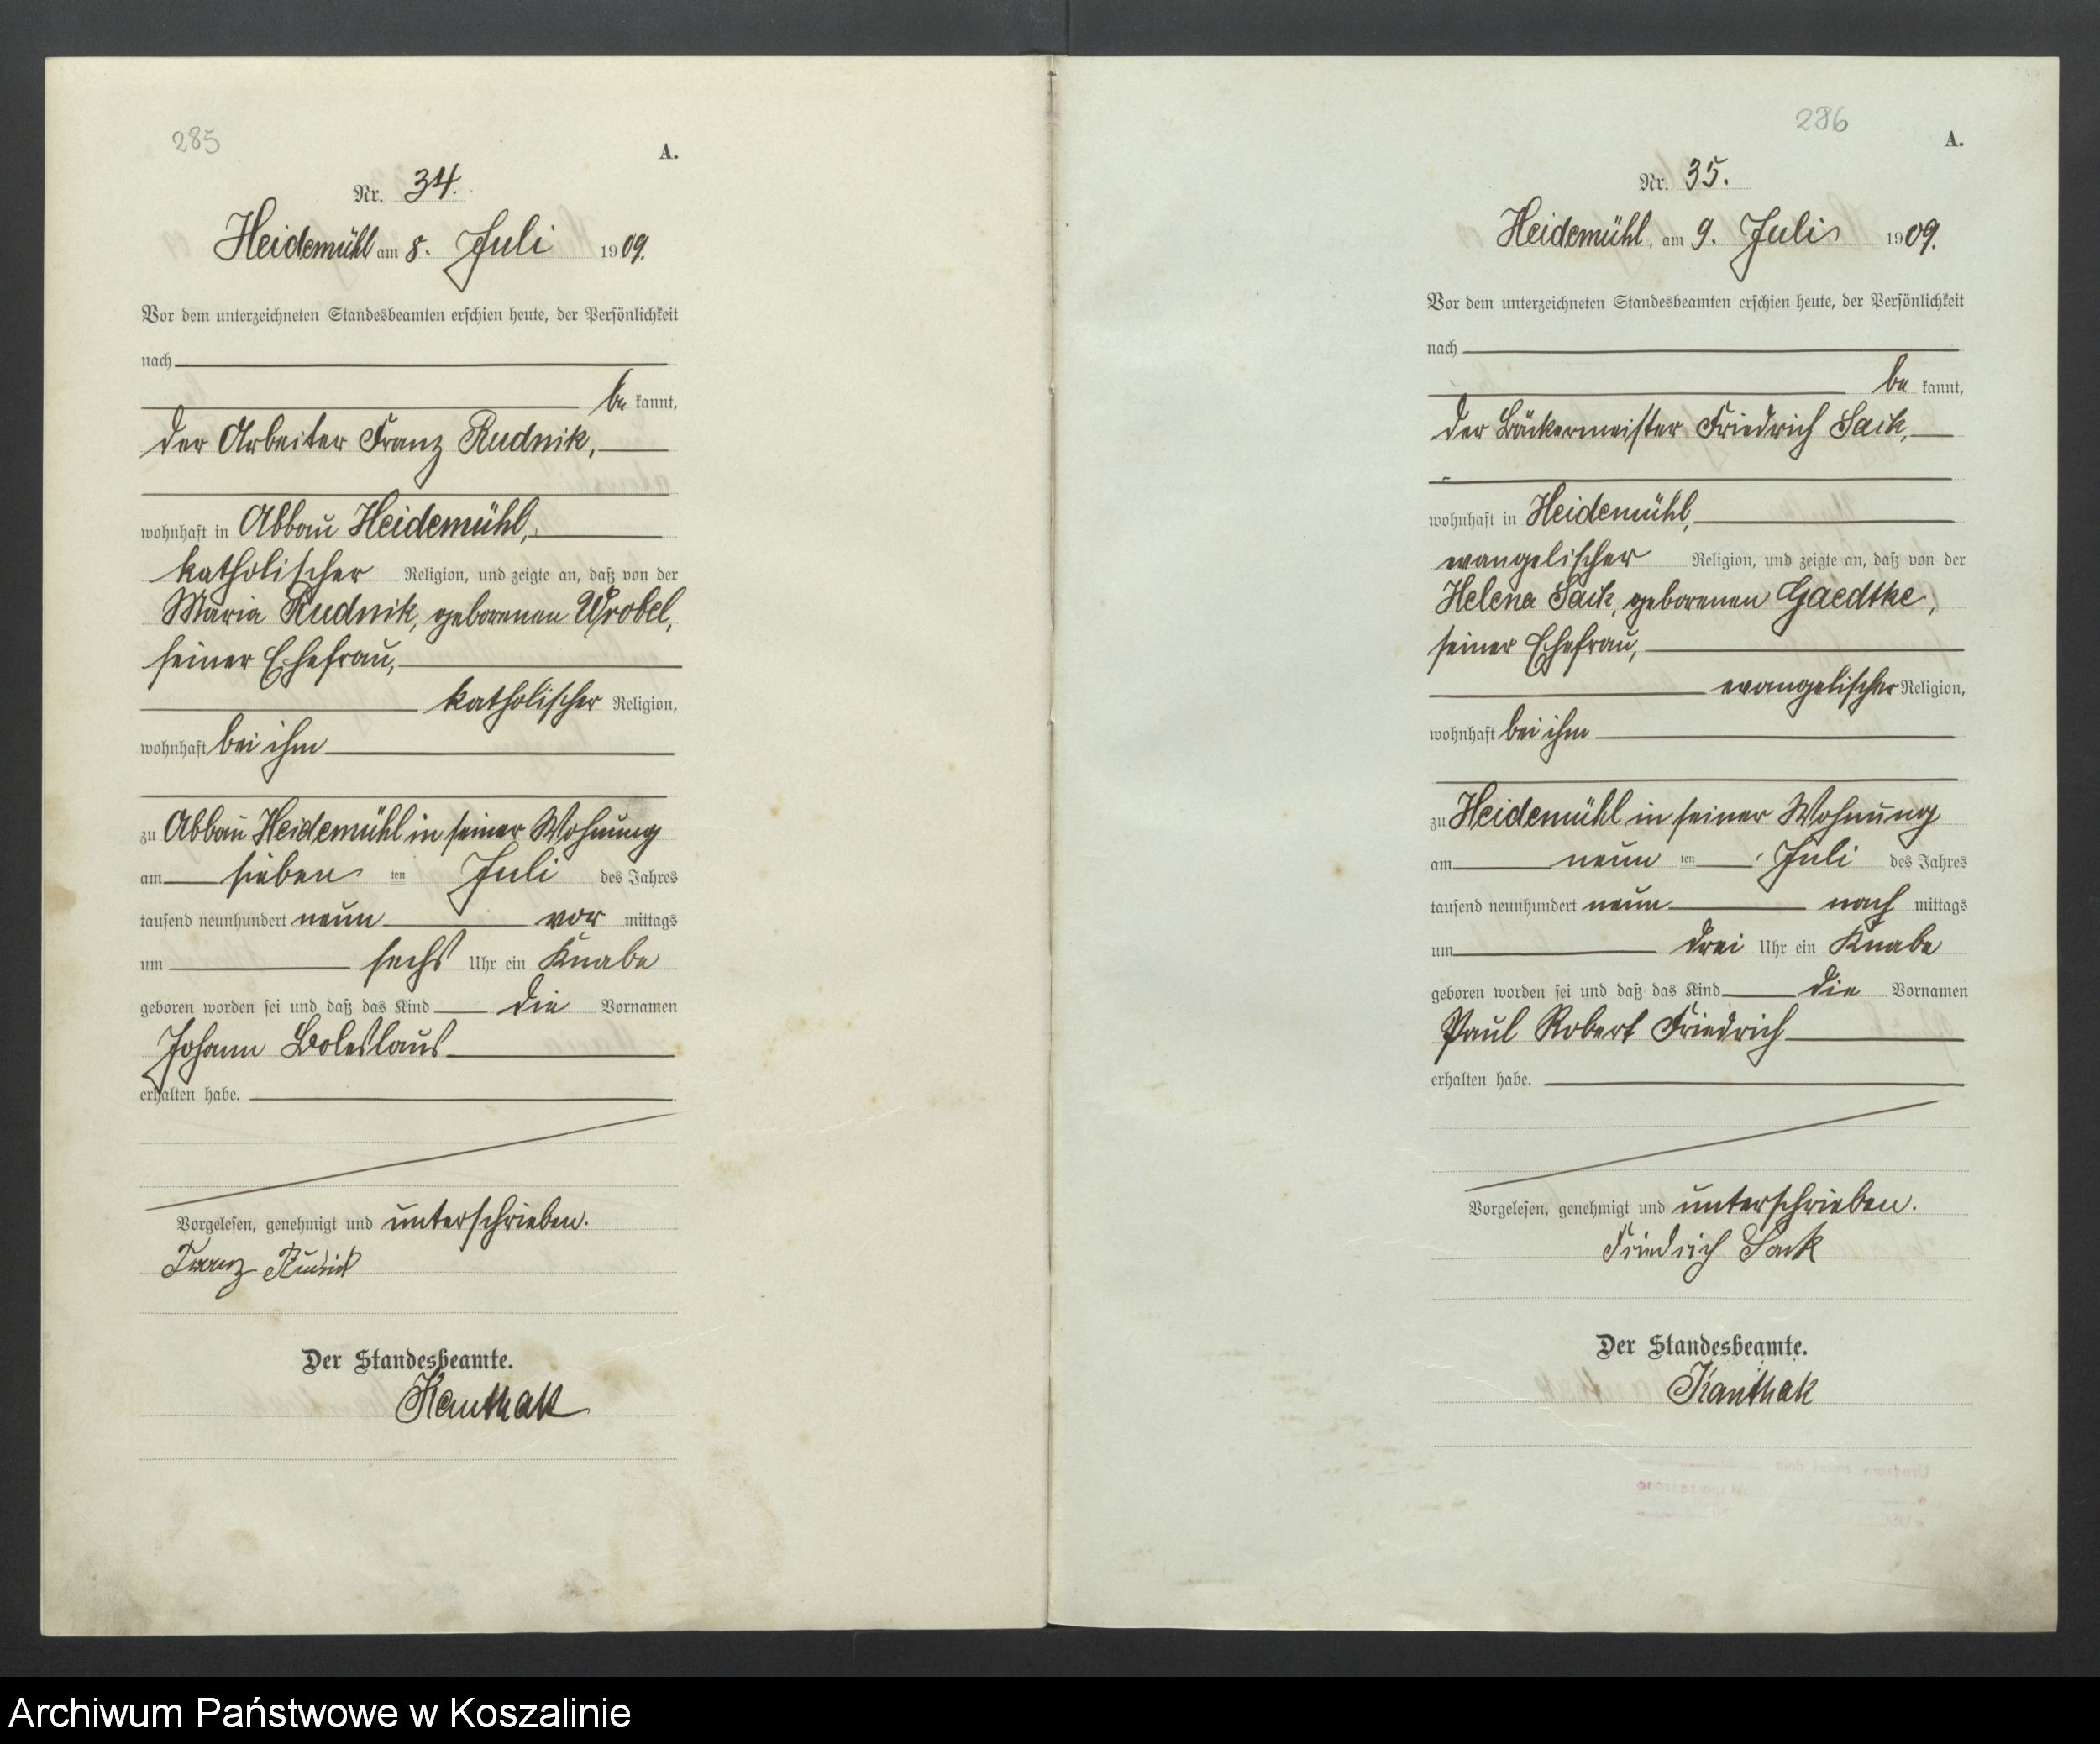 285
A.
Nr. 34.
Heidemühl am 8. Juli 1909.
Vor dem unterzeichneten Standesbeamten erschien heute, der Persönlichkeit
nach
be kannt,
der Arbeiter Franz Rudnik,
wohnhaft in Abbau Heidemühl,
katholischer Religion, und zeigte an, daß von der
Maria Rudnik, geborenen Wrobel,
seiner Ehefrau,
katholischer Religion,
wohnhaft bei ihm
zu Abbau Heidemühl in seiner Wohnung
am sieben ten Juli des Jahres
tausend neunhundert neun vor mittags
um sechs Uhr ein Knabe
geboren worden sei und daß das Kind die Vornamen
Johann Boleslaus
erhalten habe.
Vorgelesen, genehmigt und unterschrieben.
Franz
Der Standesbeamte.
Kanthak
286
A.
Nr. 35.
Heidemühl, am 9. Juli 1909.
Vor dem unterzeichneten Standesbeamten erschien heute, der Persönlichkeit
nach
be kannt,
der Bäckermeister Friedrich Sack,
wohnhaft in Heidemühl,
evangelischer Religion, und zeigte an, daß von der
Helena Sack, geborenen Gaedtke,
seiner Ehefrau,
evangelischer Religion,
wohnhaft bei ihm
zu Heidemühl in seiner Wohnung
am neun ten Juli des Jahres
tausend neunhundert neun nach mittags
um drei Uhr ein Knabe
geboren worden sei und daß das Kind die Vornamen
Paul Robert Friedrich
erhalten habe.
Vorgelesen, genehmigt und unterschrieben.
Friedrich Sack
Der Standesbeamte.
Kanthak
Archiwum Państwowe w Koszalinie